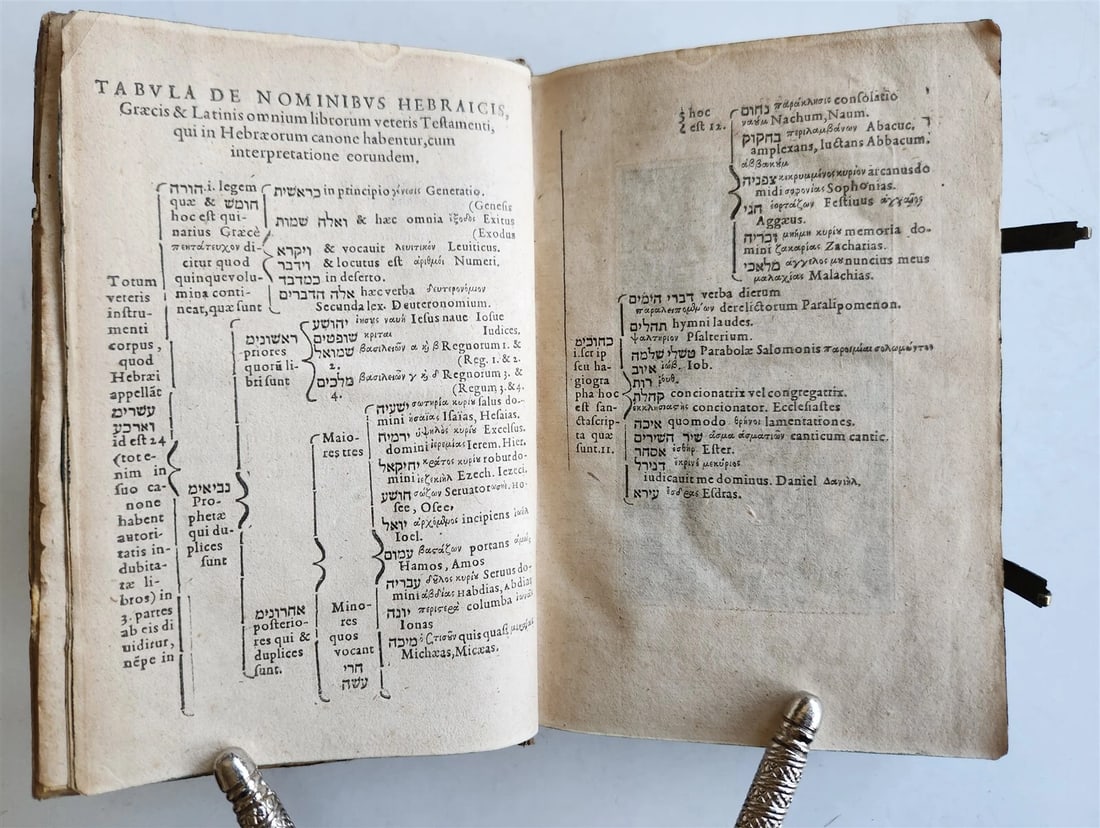 TABVLA DE NOMINIBVS HEBRAICIS,
Græcis & Latinis omnium librorum veteris Testamenti,
qui in Hebræorum canone habentur, cum
interpretatione eorundem.
Totum
veteris
instru-
menti
corpus,
quod
Hebræi
appellāt
עשרים
וארבע
id est 24
(tot e-
nim in
suo ca-
none
habent
autori-
tatis in-
dubita-
tæ li-
bros) in
3. partes
ab eis di
uiditur,
nēpe in
תורה .i. legem
quæ & חומש
hoc est qui-
narius Græcè
πεντάτευχον di-
citur quod
quinquevolu-
mina conti-
neat, quæ sunt
בראשית in principio γένεσις Generatio.
(Genesis
ואלה שמות & hæc omnia ἔξοδος Exitus
(Exodus
ויקרא & vocauit λευιτικὸν Leuiticus.
וידבר & locutus est ἀριθμοὶ Numeri.
במדבר in deserto.
אלה הדברים hæc verba δευτερονόμιον
Secunda lex. Deuteronomium.
נביאים
Pro-
phetæ
qui du-
plices
sunt
ראשונים
priores
quorū li-
bri sunt
יהושע ἰησοῦς ναυῆ Iesus naue Iosue
שופטים κριταὶ Iudices.
שמואל βασιλειῶν α κὶ β Regnorum 1. &
2. (Reg. 1. & 2.
מלכים βασιλειῶν γ κὶ δ Regnorum 3. &
4. (Regum 3. & 4.
אחרונים
posterio-
res qui &
duplices
sunt.
Maio-
res tres
ישעיה σωτηρία κυρίου salus do-
mini ἠσαΐας Isaïas, Hesaias.
ירמיה ὕψηλος κυρίου Excelsus.
domini ἰερεμίας Ierem. Hier.
יחזקאל κράτος κυρίου robur do-
mini ἰεζεκιὴλ Ezech. Iezeci.
Mino-
res
quos
vocant
תרי
עשר
הושע σώζων Seruator ὠσηέ. Ho-
see, Osee,
יואל ἀρχόμενος incipiens ἰωὴλ
Ioel.
עמוס βαστάζων portans ἀμώς,
Hamos, Amos
עבדיה δοῦλος κυρίου Seruus do-
mini ἀβδίας Habdias, Abdias
יונה περιστερὰ columba ἰωνᾶς
Ionas
מיכה quis quasi
Michæas, Micæas.
hoc
est 12.
נחום παράκλησις consolatio
ναοὺμ Nachum, Naum.
חבקוק περιλαμβάνων Abacuc.
amplexans, luctans Abbacum.
ἀββακοὺμ
צפניה κεκρυμμένος κυρίου arcanus do
midi σοφονίας Sophonias.
חגי ἑορτάζων Festiuus ἀγγαῖος
Aggæus.
זכריה μνήμη κυρίου memoria do-
mini ζακαρίας Zacharias.
מלאכי ἄγγελος μου nuncius meus
μαλαχίας Malachias.
כתובים
i. scrip
seu ha-
giogra
pha hoc
est san-
cta scrip-
ta quæ
sunt. 11.
דברי הימים verba dierum
παραλειπομένων derelictorum Paralipomenon.
תהלים hymni laudes.
ψαλτήριον Psalterium.
משלי שלמה Parabolæ Salomonis παροιμίαι σολωμῶντος
איוב ἰώβ. Iob.
רות ῥούθ.
קהלת concionatrix vel congregatrix.
ἐκκλησιαστὴς concionator. Ecclesiastes
איכה quomodo θρῆνοι lamentationes.
שיר השירים ἆσμα ἀσμάτων canticum cantic.
אסתר ἐσθήρ. Ester.
דניאל ἔκρινέ με κύριος
iudicauit me dominus. Daniel Δανιὴλ.
עזרא ἐσδρας Esdras.